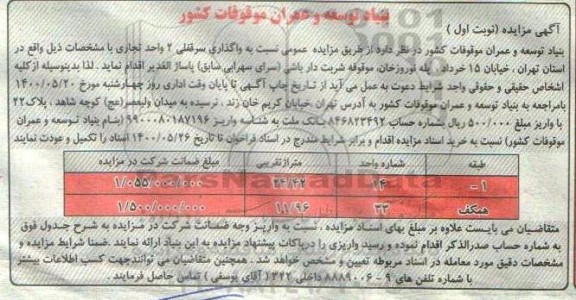 بنیاد توسعه و عمران موقوفات کشور
آگهی مزایده (نوبت اول)
بنیاد توسعه و عمران موقوفات کشور در نظر دارد از طریق مزایده عمومی نسبت به واگذاری سرقفلی ۲ واحد تجاری با مشخصات ذیل واقع در
استان تهران ، خیابان ۱۵ خرداد ، پله نوروزخان، موقوفه شربت دار باشی (سرای سهرابی سابق) پاساژ الغدیر اقدام نماید . لذا بدینوسیله از کلیه
اشخاص حقیقی و حقوقی واجد شرایط دعوت به عمل می آید از تاریخ چاپ آگهی تا پایان وقت اداری روز چهارشنبه مورخ ۱۴۰۰/۰۵/۲۰
بامراجعه به بنیاد توسعه و عمران موقوفات کشور به آدرس تهران، خیابان کریم خان زند ، نرسیده به میدان ولیعصر(عج) کوچه شاهد ، پلاک ۲۲
با واریز مبلغ ۵۰۰/۰۰۰ ریال بشماره حساب ۸۴۶۸۲۳۴۹۲ بانک ملت به شناسه واریز ۹۹۰۰۰۸۰۱۸۷۱۹۶ (بنام بنیاد توسعه و عمران
موقوفات کشور) نسبت به خرید اسناد مزایده اقدام و برابر شرایط مندرج در اسناد فراخوان تا تاریخ ۱۴۰۰/۰۵/۲۶ اسناد را تکمیل و عودت نمایند
طبقه شماره واحد متراژ تقریبی مبلغ ضمانت شرکت در مزایده
۱- ۱۴ ۲۴/۴۲ ۱/۰۵۵/۰۰۰/۰۰۰
همکف ۳۳ ۱۱/۹۶ ۱/۵۰۰/۰۰۰/۰۰۰
متقاضیان می بایست علاوه بر مبلغ بهای اسناد مزایده ، نسبت به واریز وجه ضمانت شرکت در مزایده به شرح جدول فوق
به شماره حساب صدرالذکر اقدام نموده و رسید واریزی را درپاکات پیشنهاد مزایده به این بنیاد ارائه نمایند .ضمنا شرایط مزایده و
مشخصات دقیق مورد معامله در اسناد مربوطه تعیین و مشخص خواهد شد . همچنین متقاضیان می توانندجهت کسب اطلاعات بیشتر
با شماره تلفن های ۹ - ۸۸۸۹۰۰۶ داخلی ۳۴۲ ( آقای یوسفی ) تماس حاصل فرمایند .